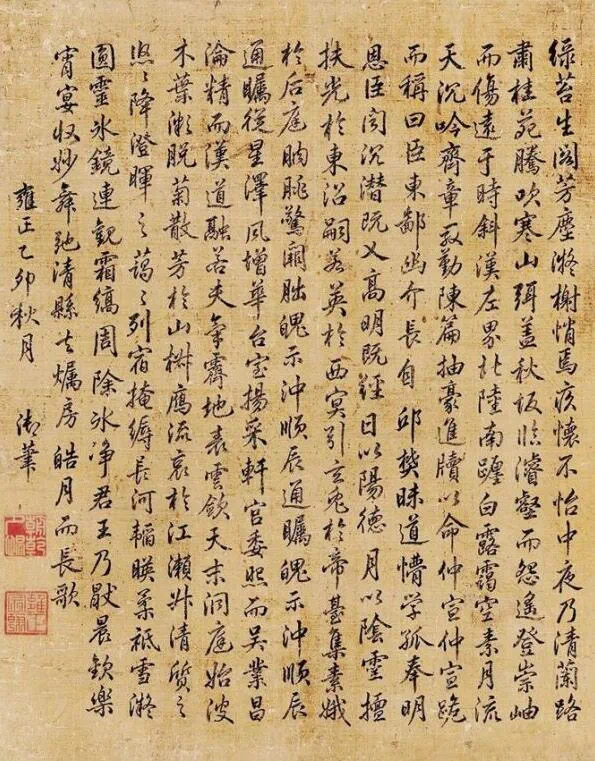 綠苔生閣芳塵凝榭悄焉疚懷不怡中夜乃清蘭路
肅桂苑騰吹寒山弭蓋秋坂臨濬壑而怨遙登崇岫
而傷遠于時斜漢左界北陸南躔白露靄空素月流
天沉吟齊章殷勤陳篇抽豪進牘以命仲宣仲宣跪
而稱曰臣東鄙幽介長自邱樊昧道懵學孤奉明
恩臣聞沉潛既义高明既經日以陽德月以陰靈擅
扶光於東沼嗣若英於西冥引玄兔於帝臺集素娥
於后庭朒朓驚闕朏魄示沖順辰通矚魄示沖順辰
通矚從星澤風增華台室揚采軒宮委照而吳業昌
淪精而漢道融若夫氣霽地表雲斂天末洞庭始波
木葉漸脫菊散芳於山椒鴈流哀於江瀨升清質之
悠悠降澄暉之藹藹列宿掩縟長河韜暎柔祇雪凝
圓靈水鏡連觀霜縞周除冰净君王乃厭晨歡樂
宵宴收妙舞弛清縣去燭房皓月而長歌
雍正乙卯秋月 御筆